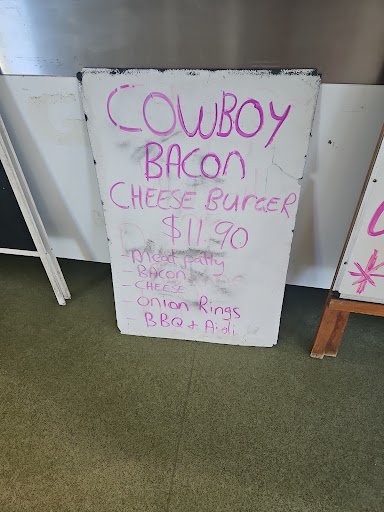 COWBOY
BACON
CHEESE BURGER
$11.90
- Meat patty
- BACON
- CHEESE
- Onion Rings
- BBQ + Aioli